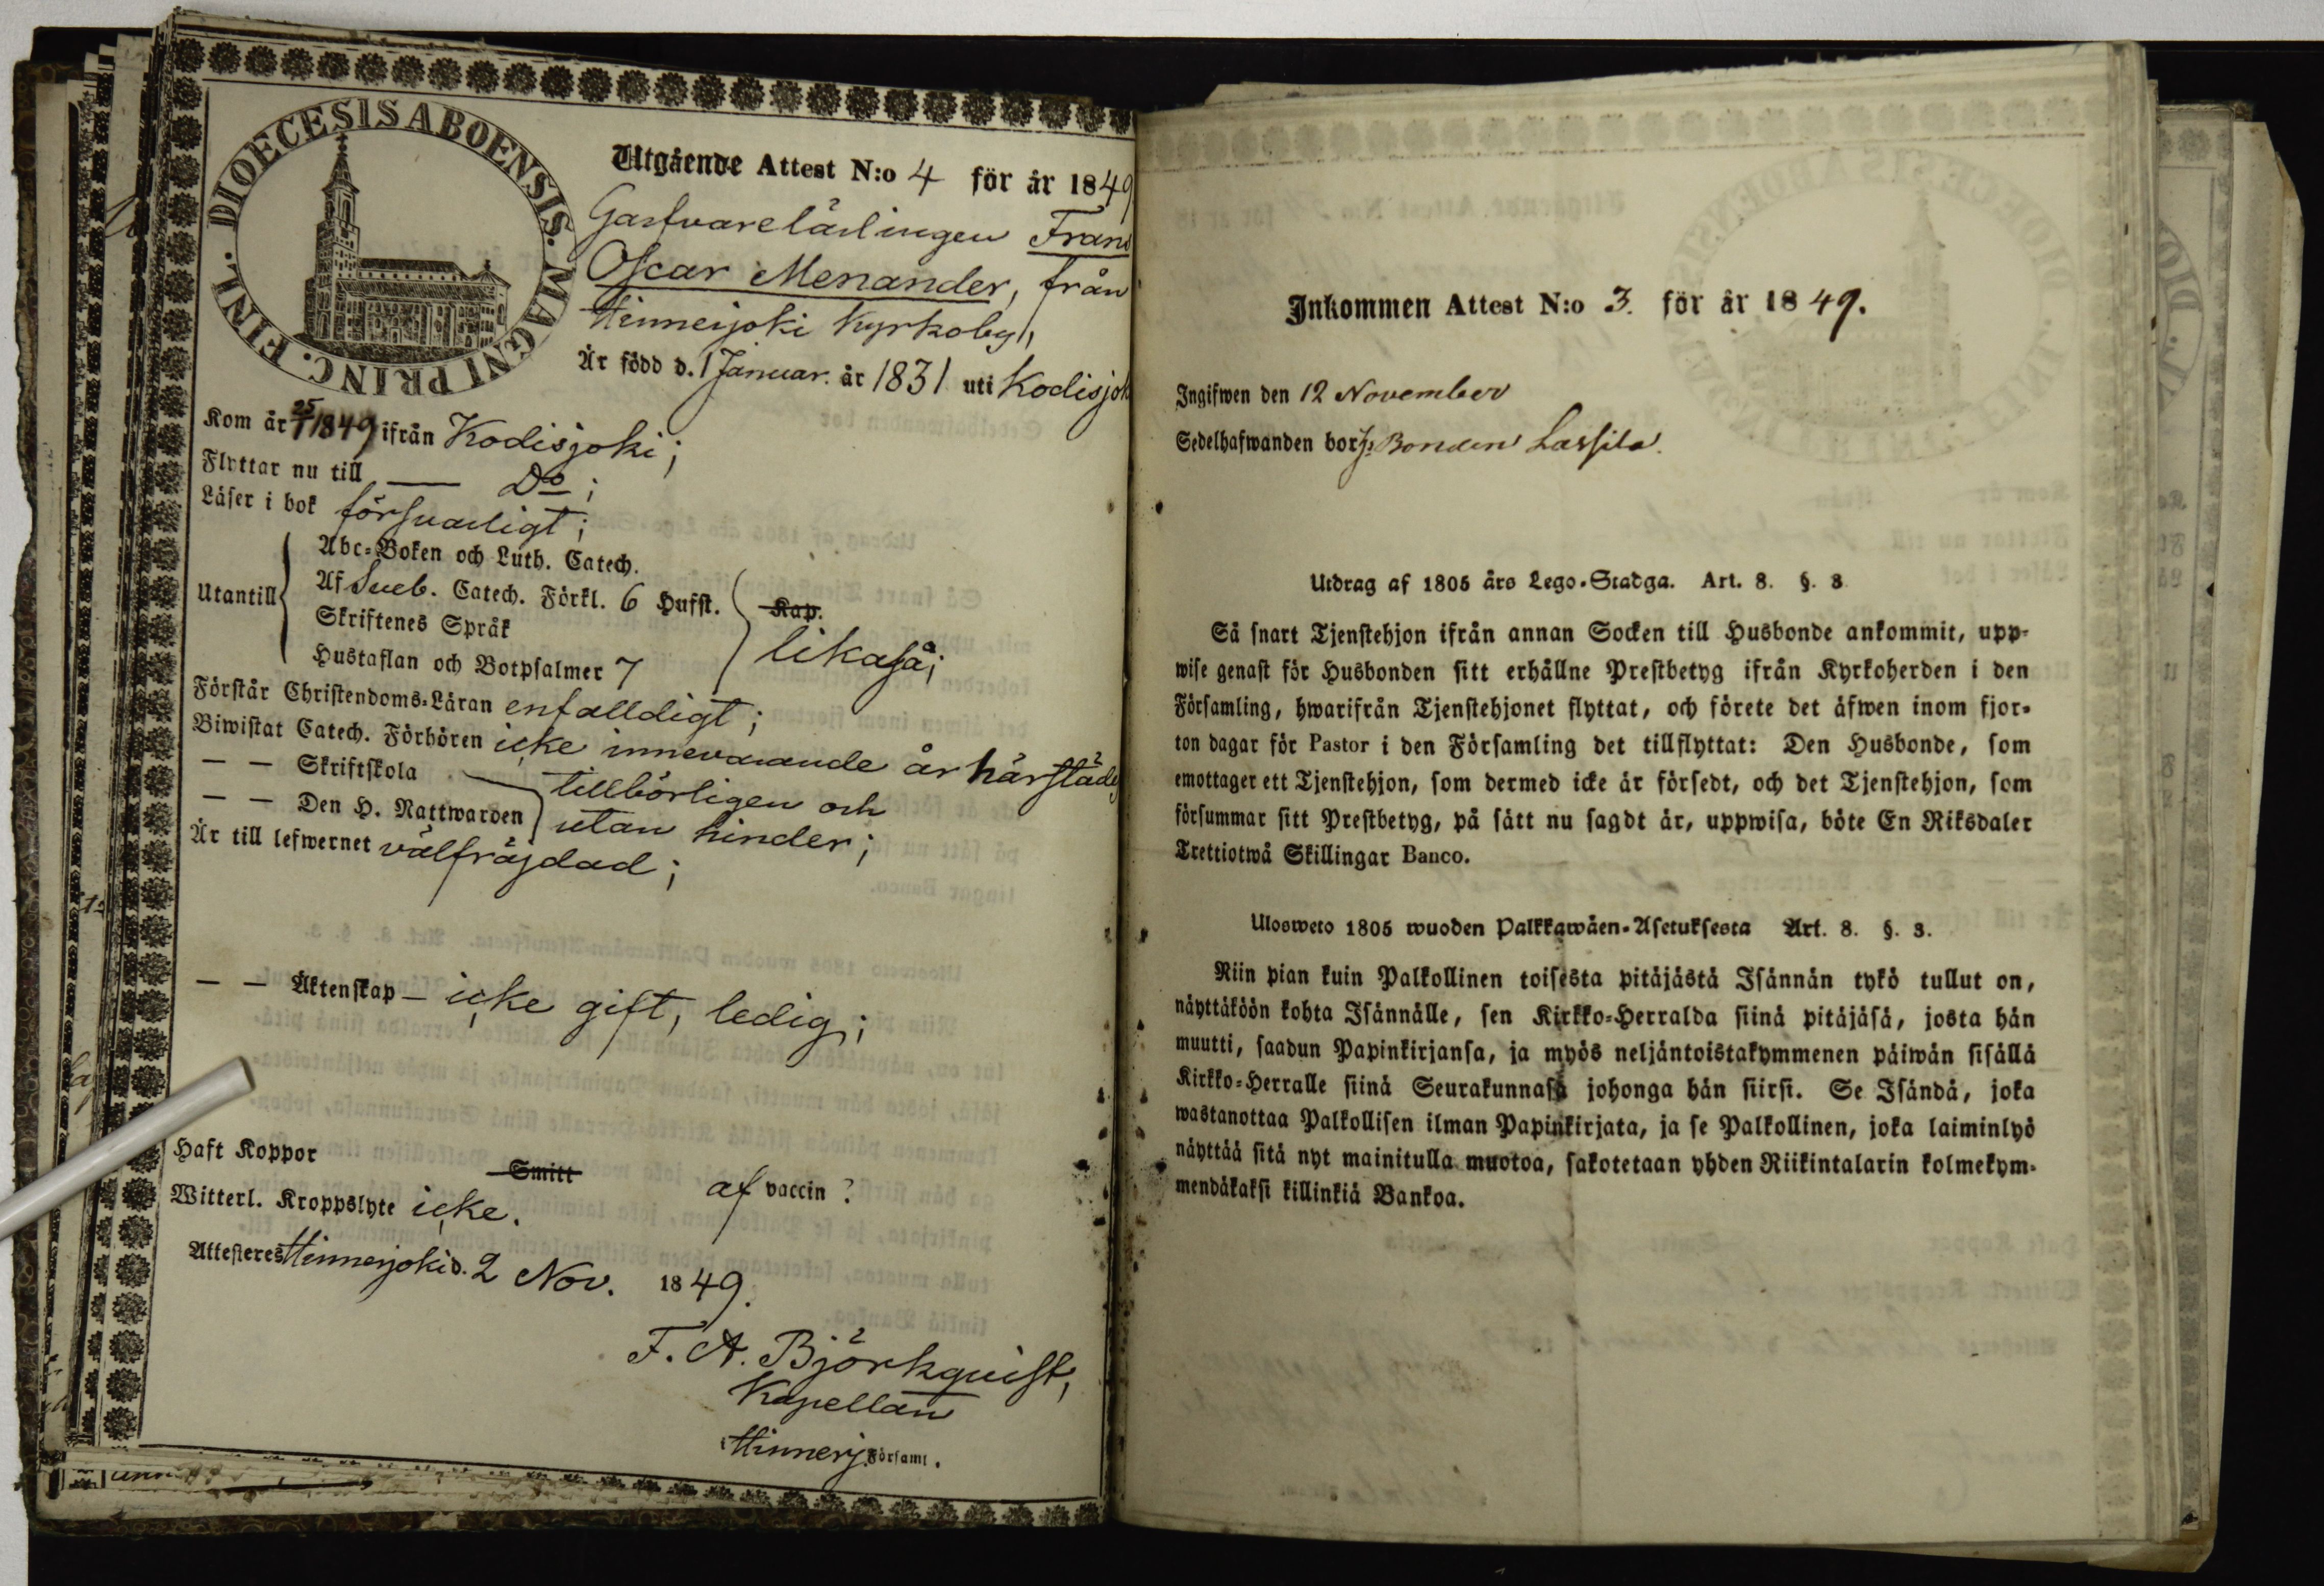 DIOECESIS ABOENSIS. MAGNI PRINC. FINL.
Utgående Attest N:o 4 för år 1849
Garfvarelärlingen Frans
Oscar Menander, från
Hinnerjoki Kyrkoby,
Är född d. 1 Januar. år 1831 uti Kodisjok
Kom år 1849 ifrån Kodisjoki;
Flyttar nu till — Do;
Läser i bok försvarligt;
Utantill
Abc-Boken och Luth. Catech.
Af Sveb. Catech. Förkl. 6 Hufst.
Skriftenes Språk
Hustaflan och Botpsalmer 7
Kap.
likaså;
Förstår Christendoms-Läran enfalldigt;
Biwistat Catech. Förhören icke innevarande år härstädes
— — Skriftskola — tillbörligen och
— — Den H. Nattwarden utan hinder;
Är till lefwernet välfräjdad;
— — Äktenskap — icke gift, ledig;
Haft Koppor Smitt af vaccin ?
Witterl. Kroppslyte icke.
Attesteres Hinnerjoki d. 2 Nov. 1849.
F. A. Björkquist,
Kapellan
i Hinnerj. Församl.
Inkommen Attest N:o 3. för år 1849.
Ingifwen den 12 November
Sedelhafwanden bor på Bonden Lassila.
Utdrag af 1805 års Lego-Stadga. Art. 8. §. 3
Så snart Tjenstehjon ifrån annan Socken till Husbonde ankommit, upp-
wise genast för Husbonden sitt erhållne Prestbetyg ifrån Kyrkoherden i den
Församling, hwarifrån Tjenstehjonet flyttat, och förete det äfwen inom fjor-
ton dagar för Pastor i den Församling det tillflyttat: Den Husbonde, som
emottager ett Tjenstehjon, som dermed icke är försedt, och det Tjenstehjon, som
försummar sitt Prestbetyg, på sätt nu sagdt är, uppwisa, böte En Riksdaler
Trettiotwå Skillingar Banco.
Ulosweto 1805 wuoden Palkkawäen-Asetuksesta Art. 8. §. 3.
Niin pian kuin Palkollinen toisesta pitäjästä Isännän tykö tullut on,
näyttäköön kohta Isännälle, sen Kirkko-Herralda siinä pitäjäsä, josta hän
muutti, saadun Papinkirjansa, ja myös neljäntoistakymmenen päiwän sisällä
Kirkko-Herralle siinä Seurakunnasa johonga hän siirsi. Se Isändä, joka
wastanottaa Palkollisen ilman Papinkirjata, ja se Palkollinen, joka laiminlyö
näyttää sitä nyt mainitulla muotoa, sakotetaan yhden Riikintalarin kolmekym-
mendäkaksi killinkiä Bankoa.